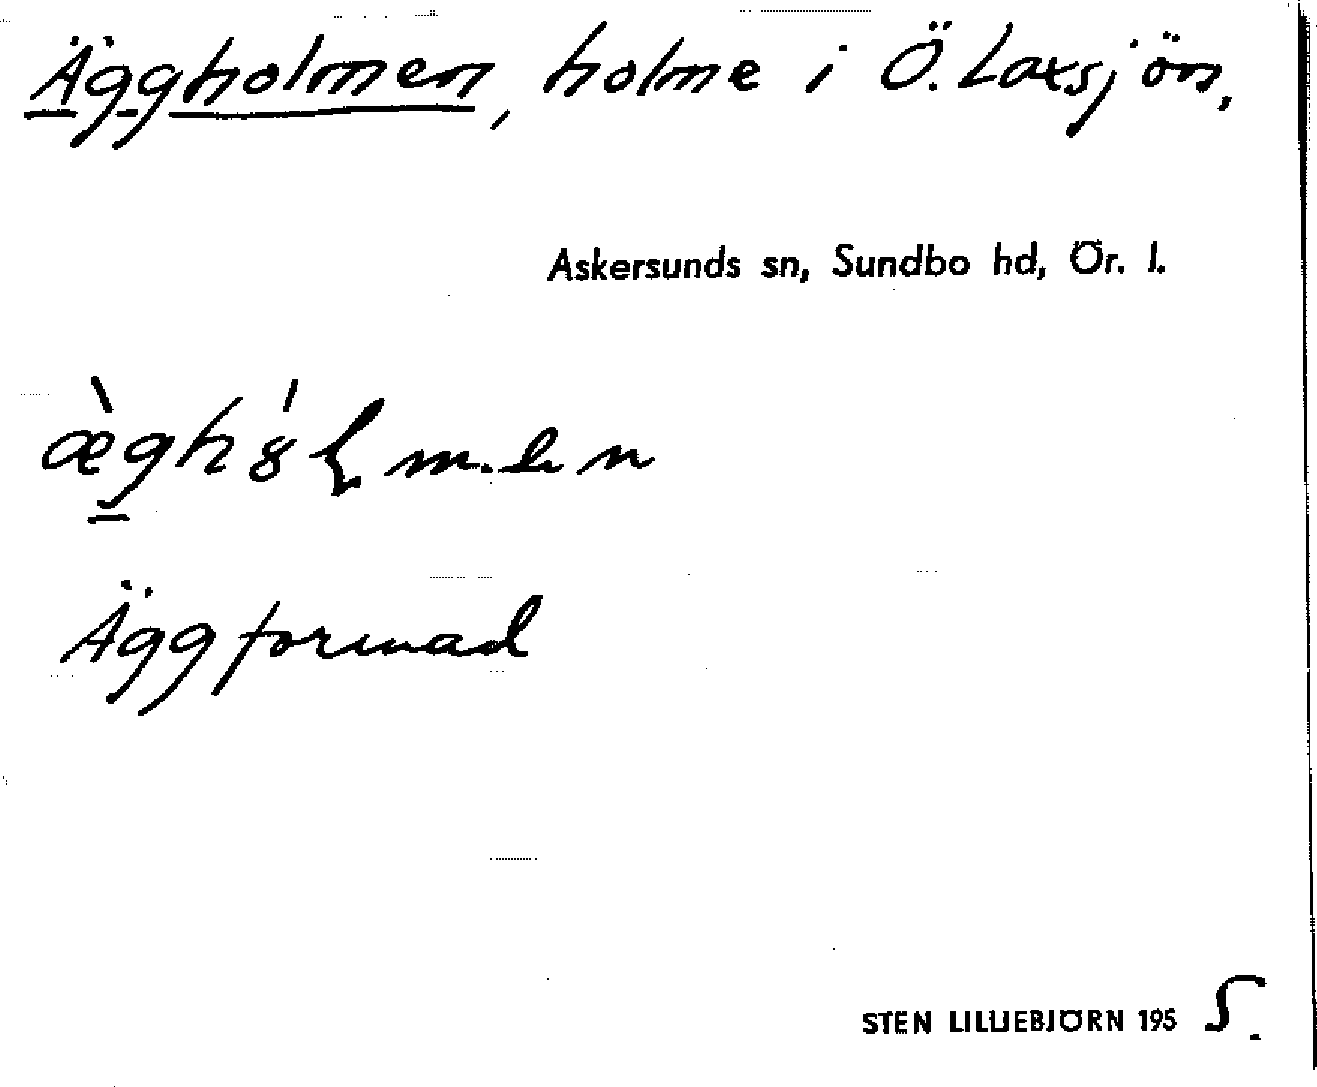 Äggholmen, holme i Ö. Laxsjön,
Askersunds sn, Sundbo hd, Ör. l.
æ̀g̲hȣ́ɭmen
Äggformad
STEN LILLIEBJÖRN 1955.